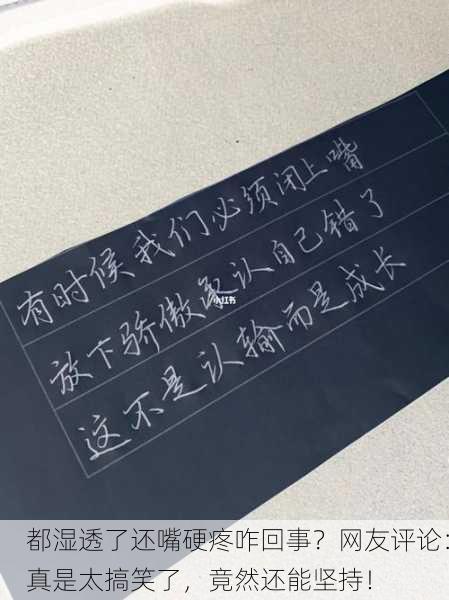 有时候我们必须闭上嘴
放下骄傲承认自己错了
小红书
这不是认输而是成长
都湿透了还嘴硬疼咋回事？网友评论：
真是太搞笑了，竟然还能坚持！